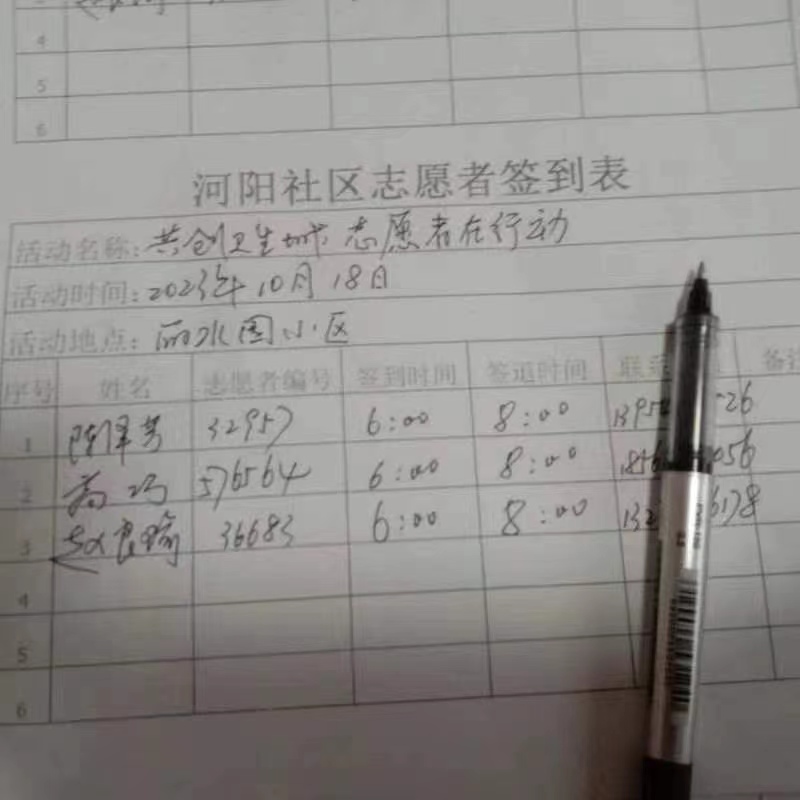 4
5
6
河阳社区志愿者签到表
活动名称: 共创卫生城 志愿者在行动
活动时间: 2023年10月18日
活动地点: 丽水园小区
序号 姓名 志愿者编号 签到时间 签退时间 联系 备注
1 陈泽芳 32957 6:00 8:00 1395 26
2 576564 6:00 8:00 185 056
3 赵良瑜 36683 6:00 8:00 132 6178
4
5
6